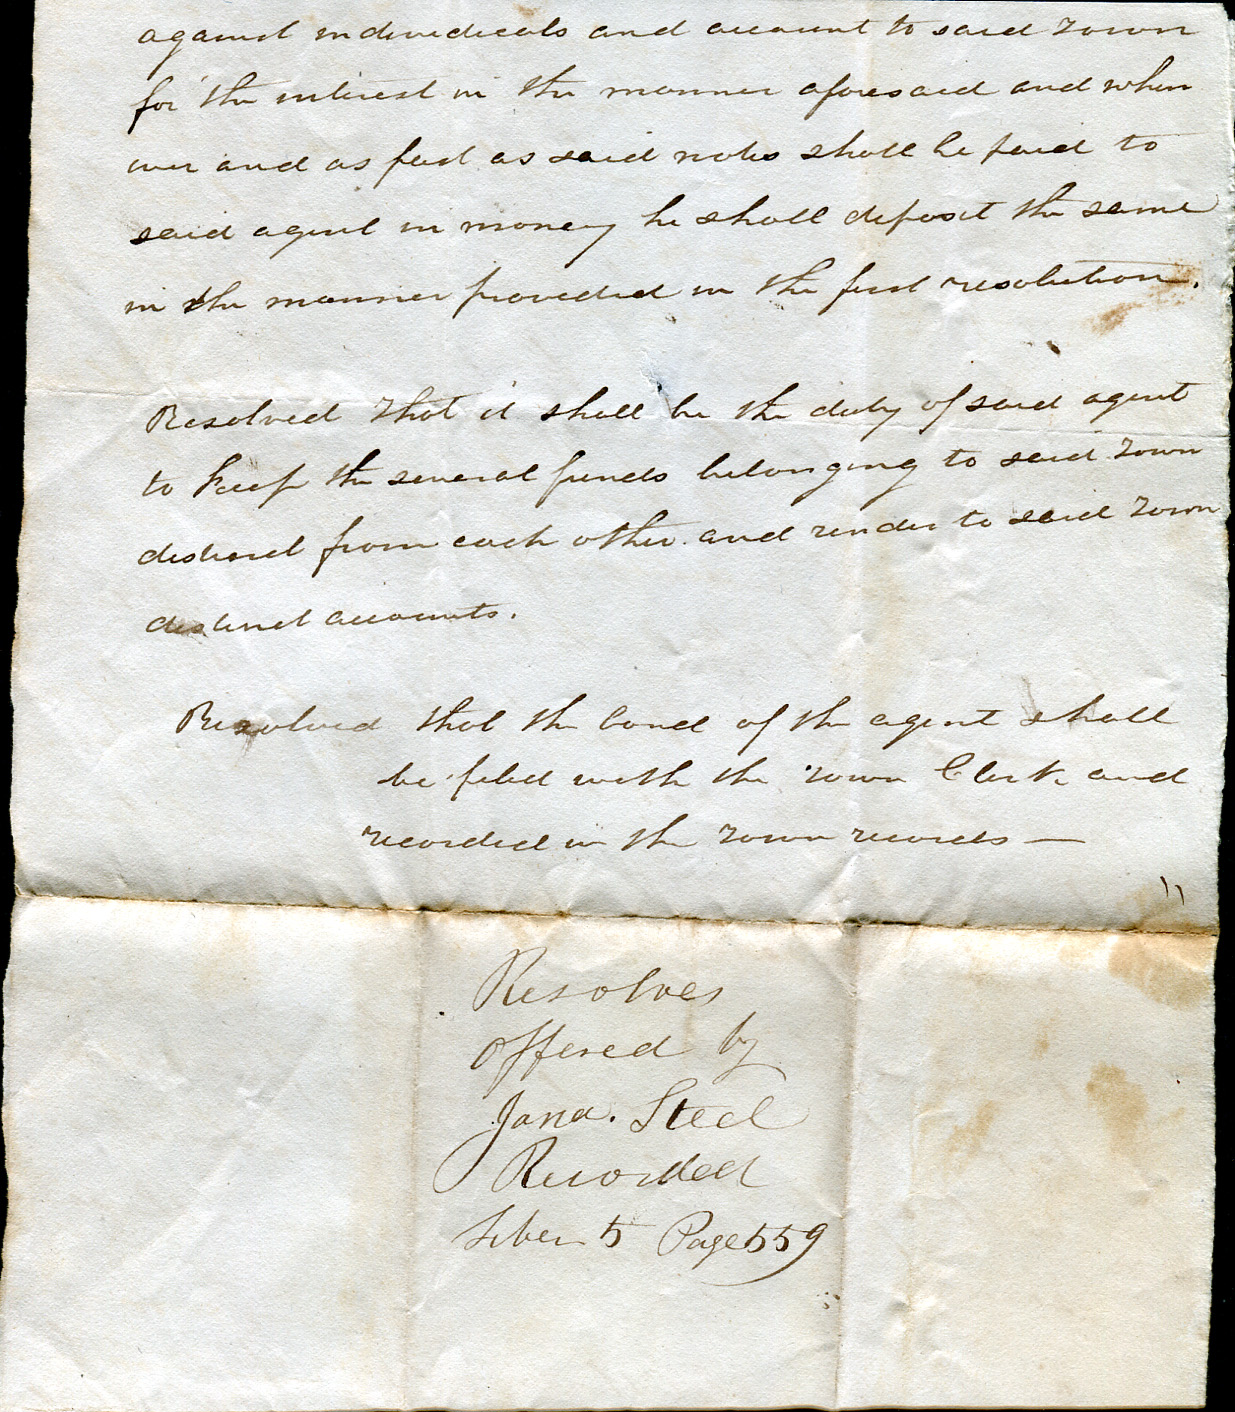 against individuals and account to said Town
for the interest in the manner aforesaid and when
ever and as fast as said notes shall be paid to
said agent in money he shall deposit the same
in the manner provided in the first resolution.
Resolved That it shall be the duty of said agent
to keep the several funds belonging to said Town
distinct from each other and render to said Town
distinct accounts.
Resolved that the bond of the agent shall
be filed with the Town Clerk and
recorded in the Town records —
Resolves
offered by
Jona. Steel
Recorded
Liber 5 Page 559